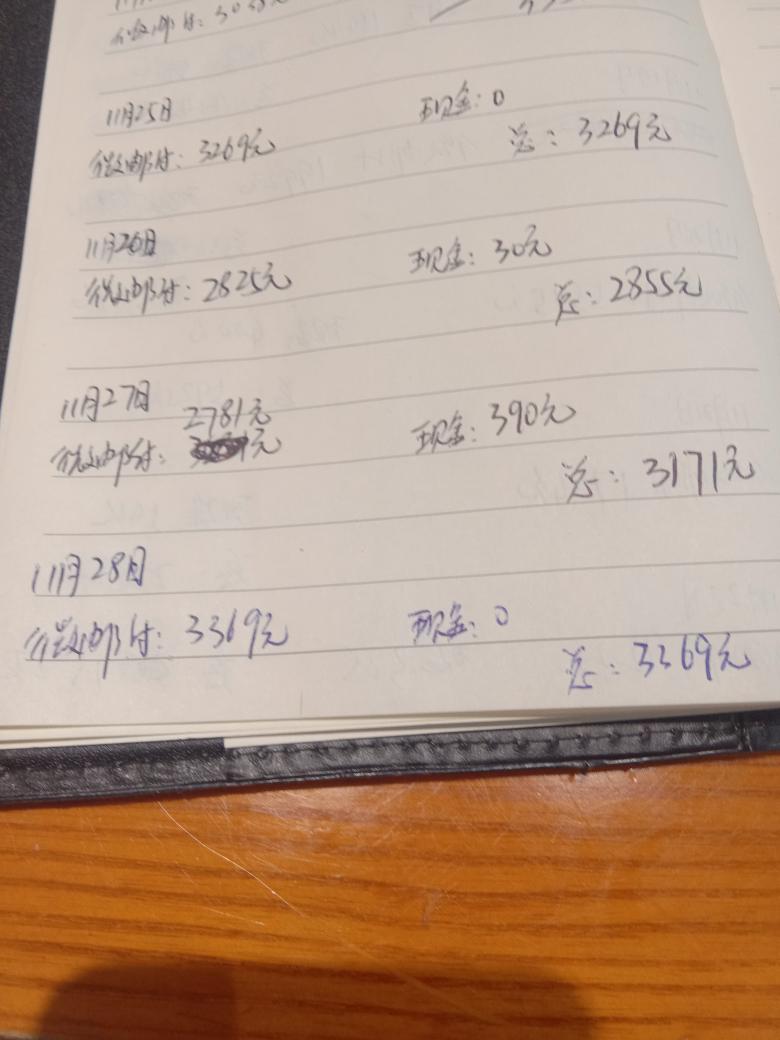 11月25日 现金：0
微邮付：3269元 总：3269元
11月26日 现金：30元
微邮付：2825元 总：2855元
11月27日 2781元 现金：390元
微邮付： 元 总：3171元
11月28日
微邮付：3369元 现金：0
总：3369元